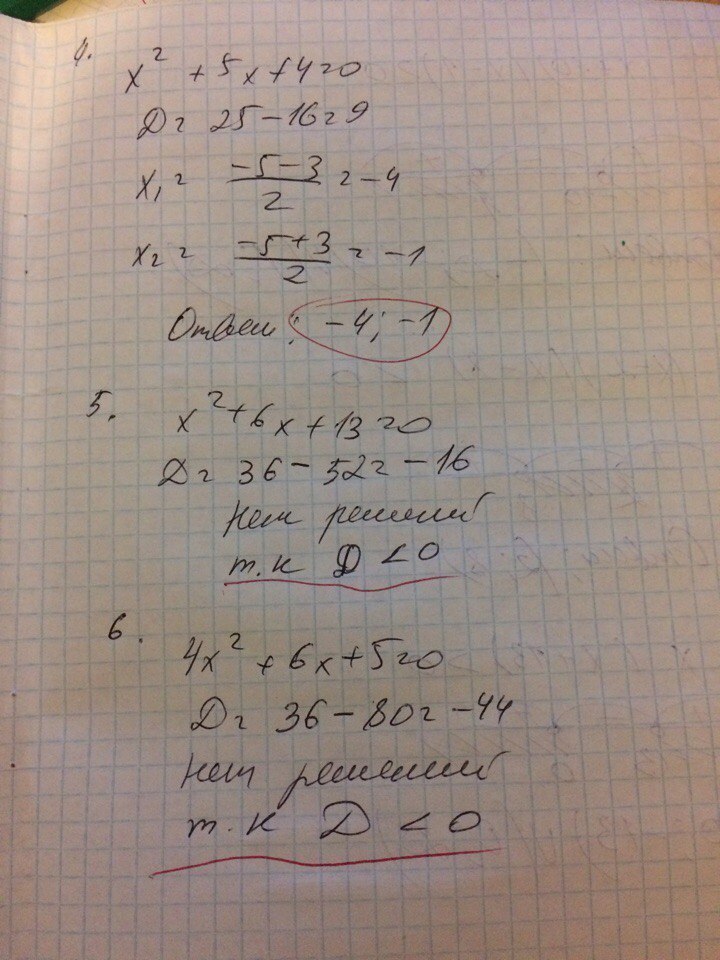 4.
x² + 5x + 4 = 0
D = 25 - 16 = 9
x₁ = (-5 - 3)/2 = -4
x₂ = (-5 + 3)/2 = -1
Ответ: -4; -1
5. x² + 6x + 13 = 0
D = 36 - 52 = -16
Нет решений
т.к D < 0
6.
4x² + 6x + 5 = 0
D = 36 - 80 = -44
Нет решений
т.к D < 0